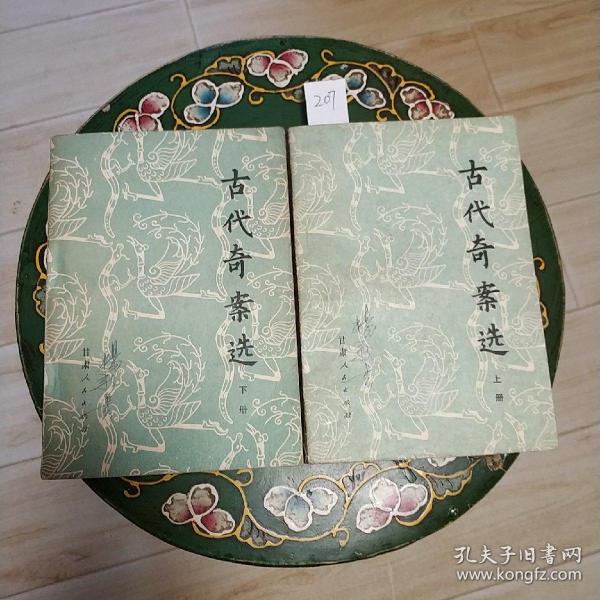 207
古代奇案选
下册
甘肃人民出版社
古代奇案选
上册
甘肃人民出版社
孔夫子旧書网
www.kongfz.com